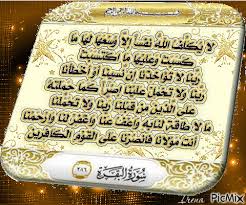 لا يكلف الله نفسا إلا وسعها لها ما
كسبت وعليها ما اكتسبت
ربنا لا تؤاخذنا إن نسينا أو أخطأنا
ربنا ولا تحمل علينا إصرا كما حملته
على الذين من قبلنا ربنا ولا تحملنا
ما لا طاقة لنا به واعف عنا واغفر لنا وارحمنا
أنت مولانا فانصرنا على القوم الكافرين
سورة البقرة ٢٨٦
Irena PicMix